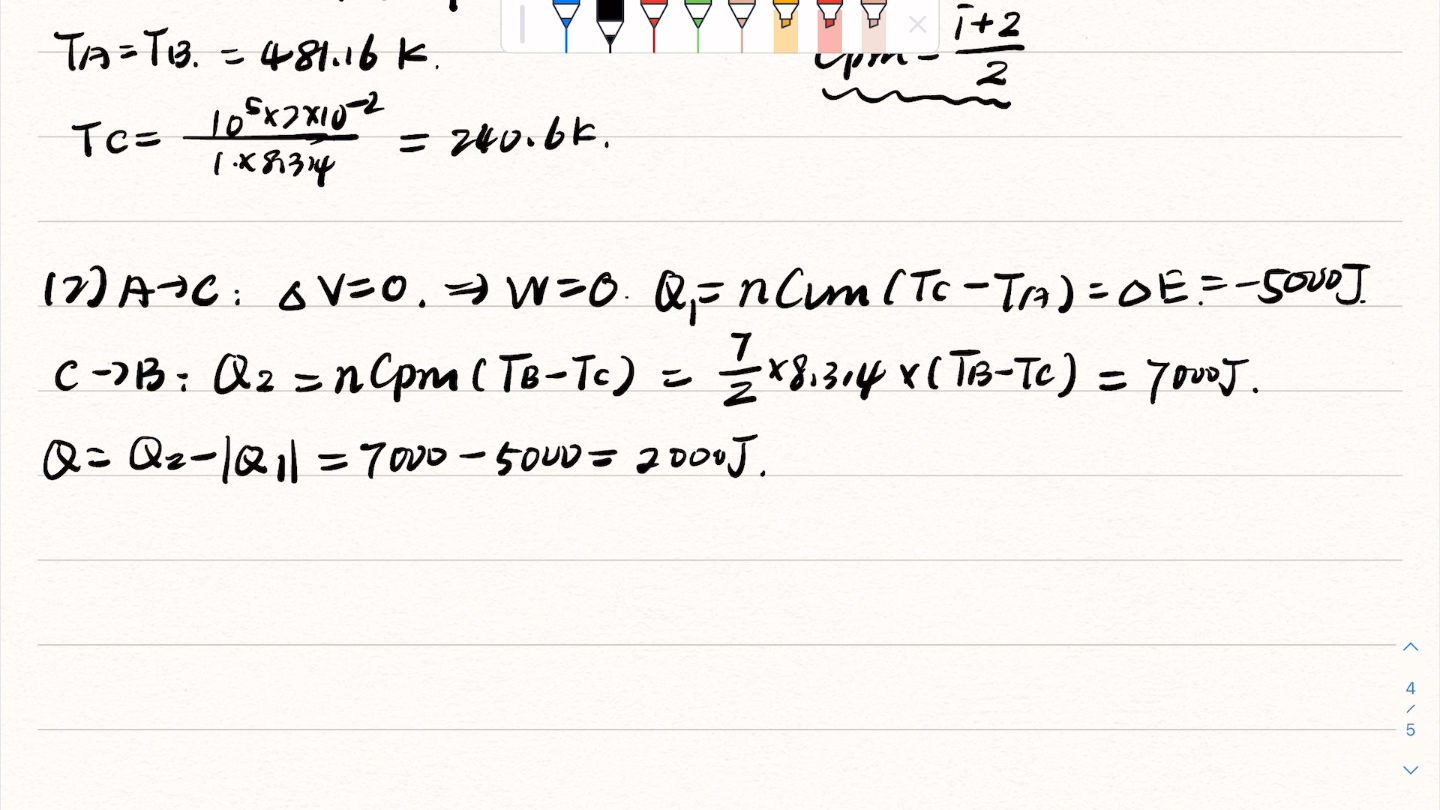 TA=TB. = 481.16 K.
Cpm = i+2/2
TC = 10⁵×2×10⁻²/1×8.314 = 240.6K.
(2) A→C: ΔV=0. ⇒ W=0. Q₁= nCvm (TC-TA) = ΔE = -5000J.
C→B: Q₂ = nCpm (TB-TC) = 7/2 ×8.314 ×(TB-TC) = 7000J.
Q= Q₂-|Q₁| = 7000-5000= 2000J.
4
/
5